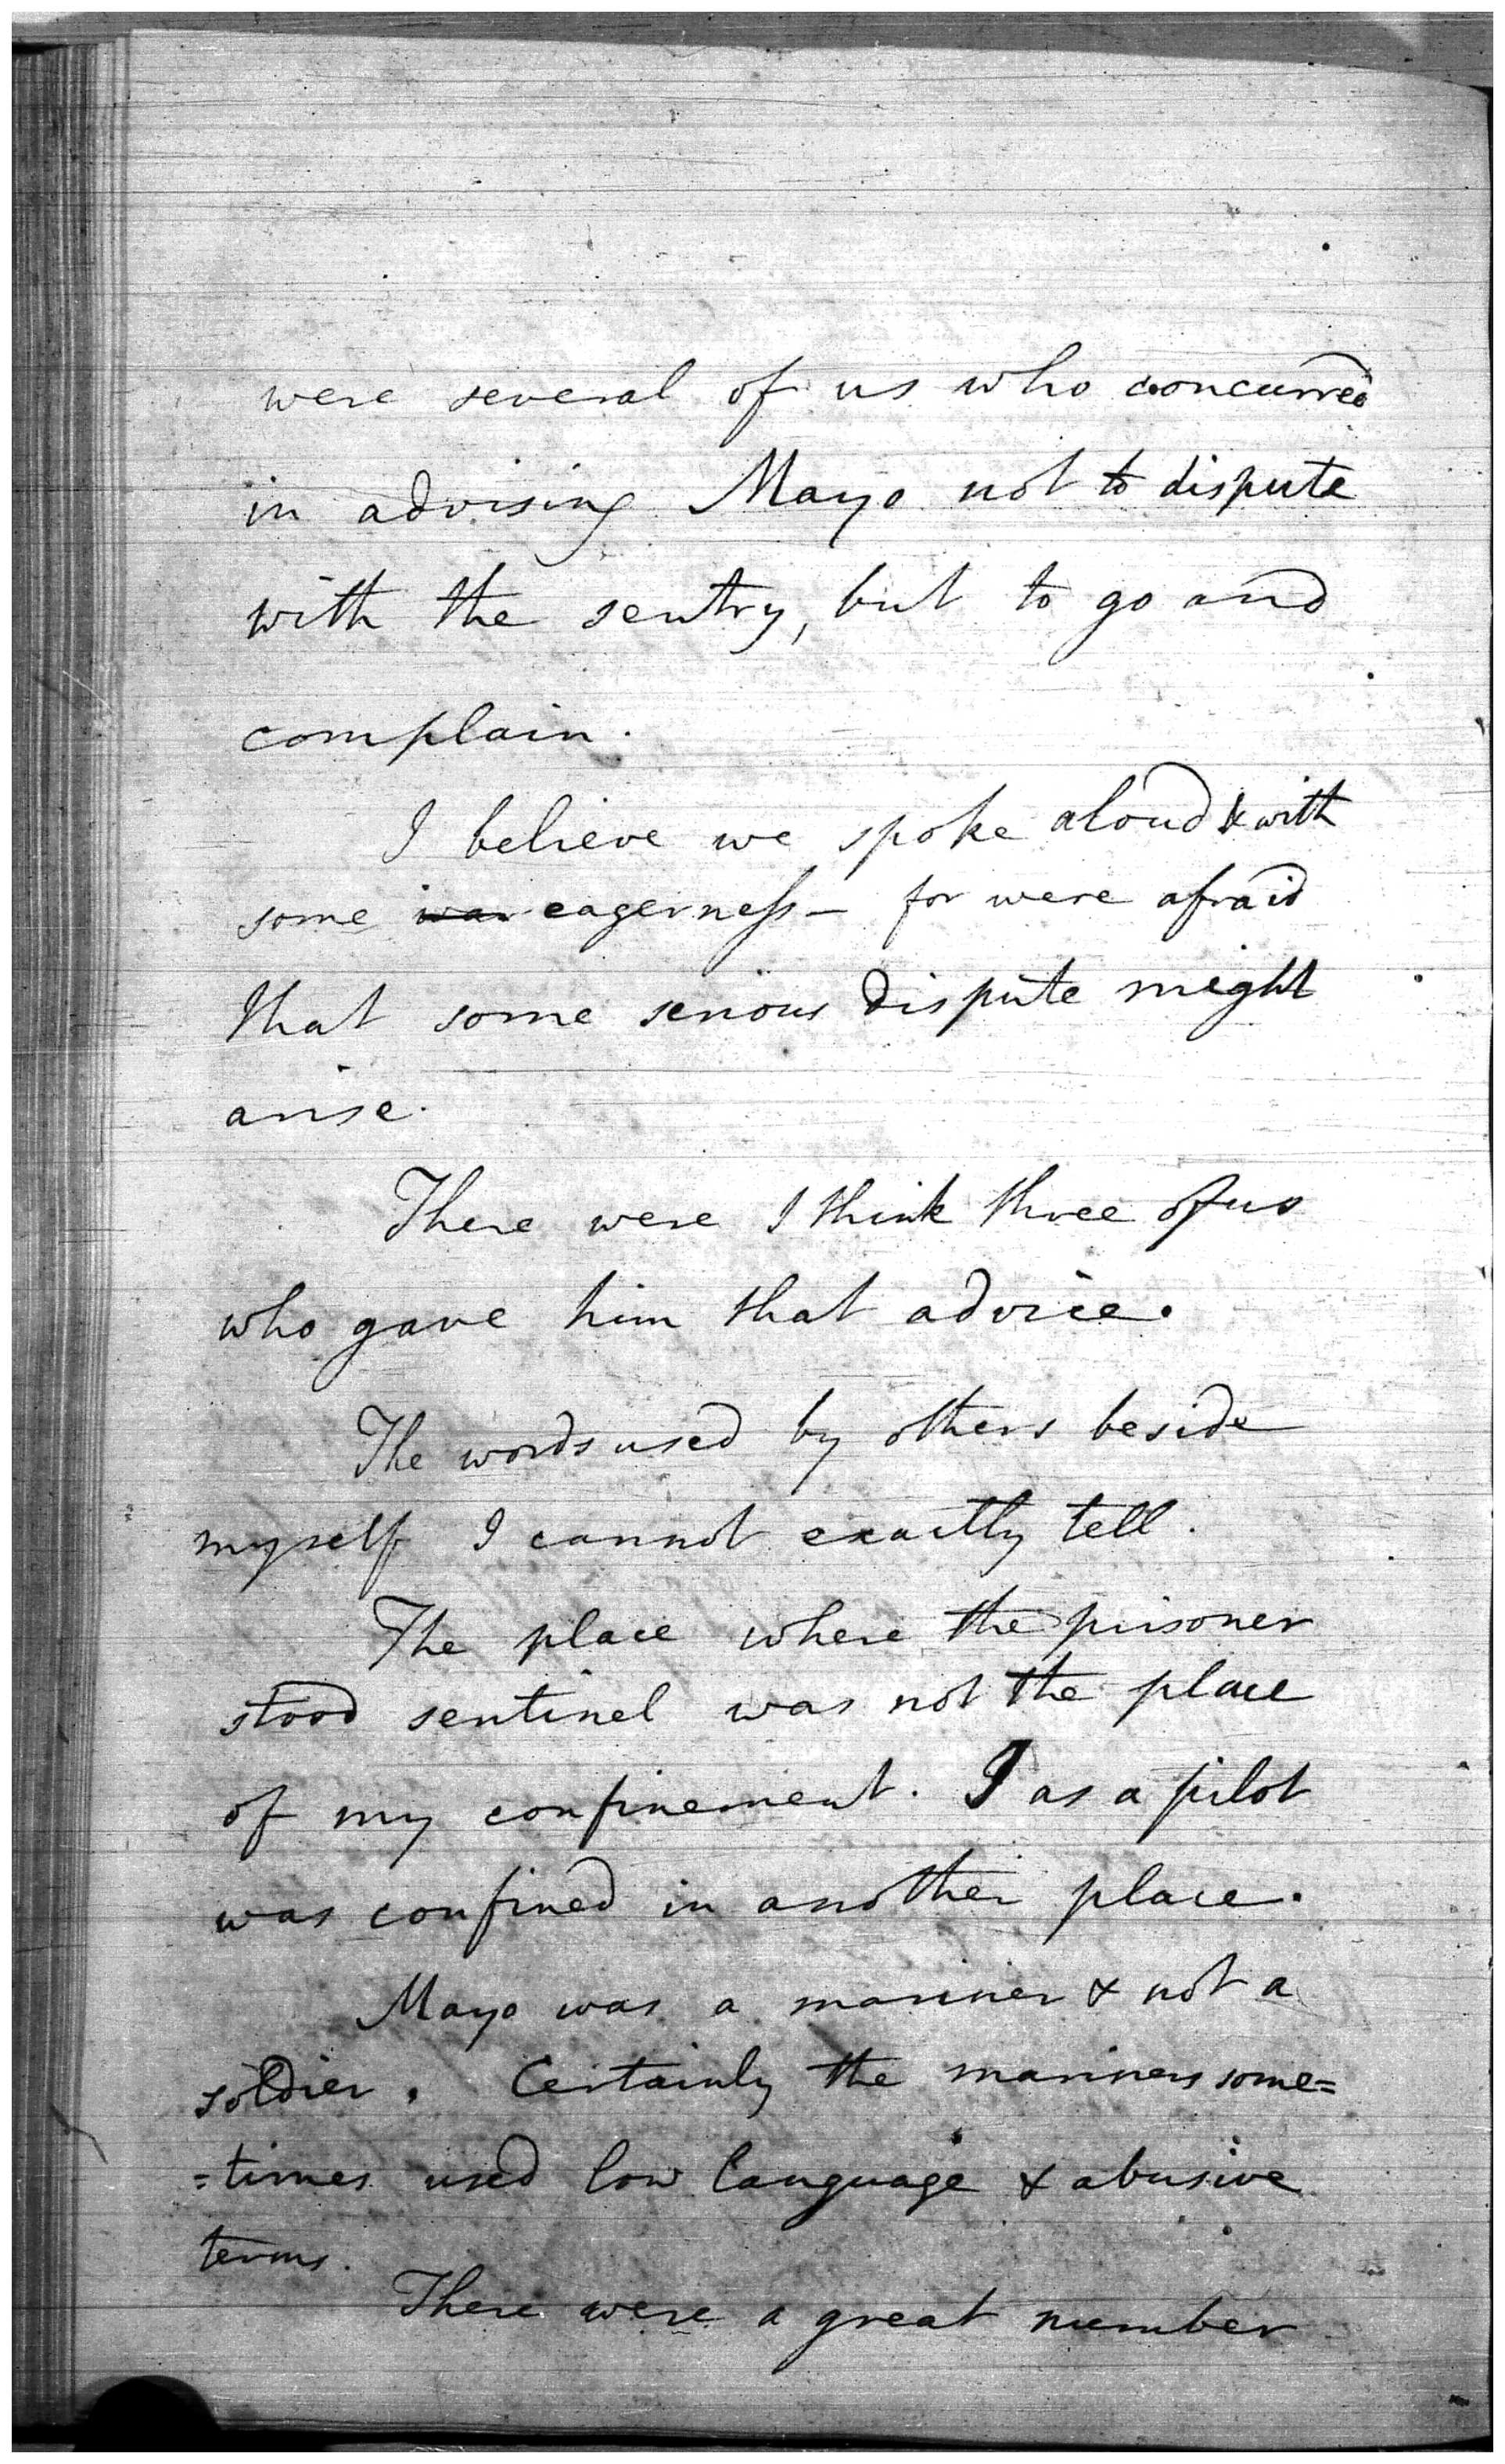 were several of us who concurred
in advising Mayo not to dispute
with the sentry, but to go and
complain.
I believe we spoke aloud & with
some eagerness — for were afraid
that some serious dispute might
arise.
There were I think three of us
who gave him that advice.
The words used by others beside
myself I cannot exactly tell.
The place where the prisoner
stood sentinel was not the place
of my confinement. I as a pilot
was confined in another place.
Mayo was a mariner & not a
soldier. Certainly the mariners some=
=times used low language & abusive
terms.
There were a great number